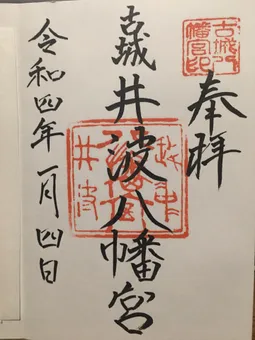 奉拝
古城八
幡宮印
古城井波八幡宮
越中
井波
令和四年一月四日